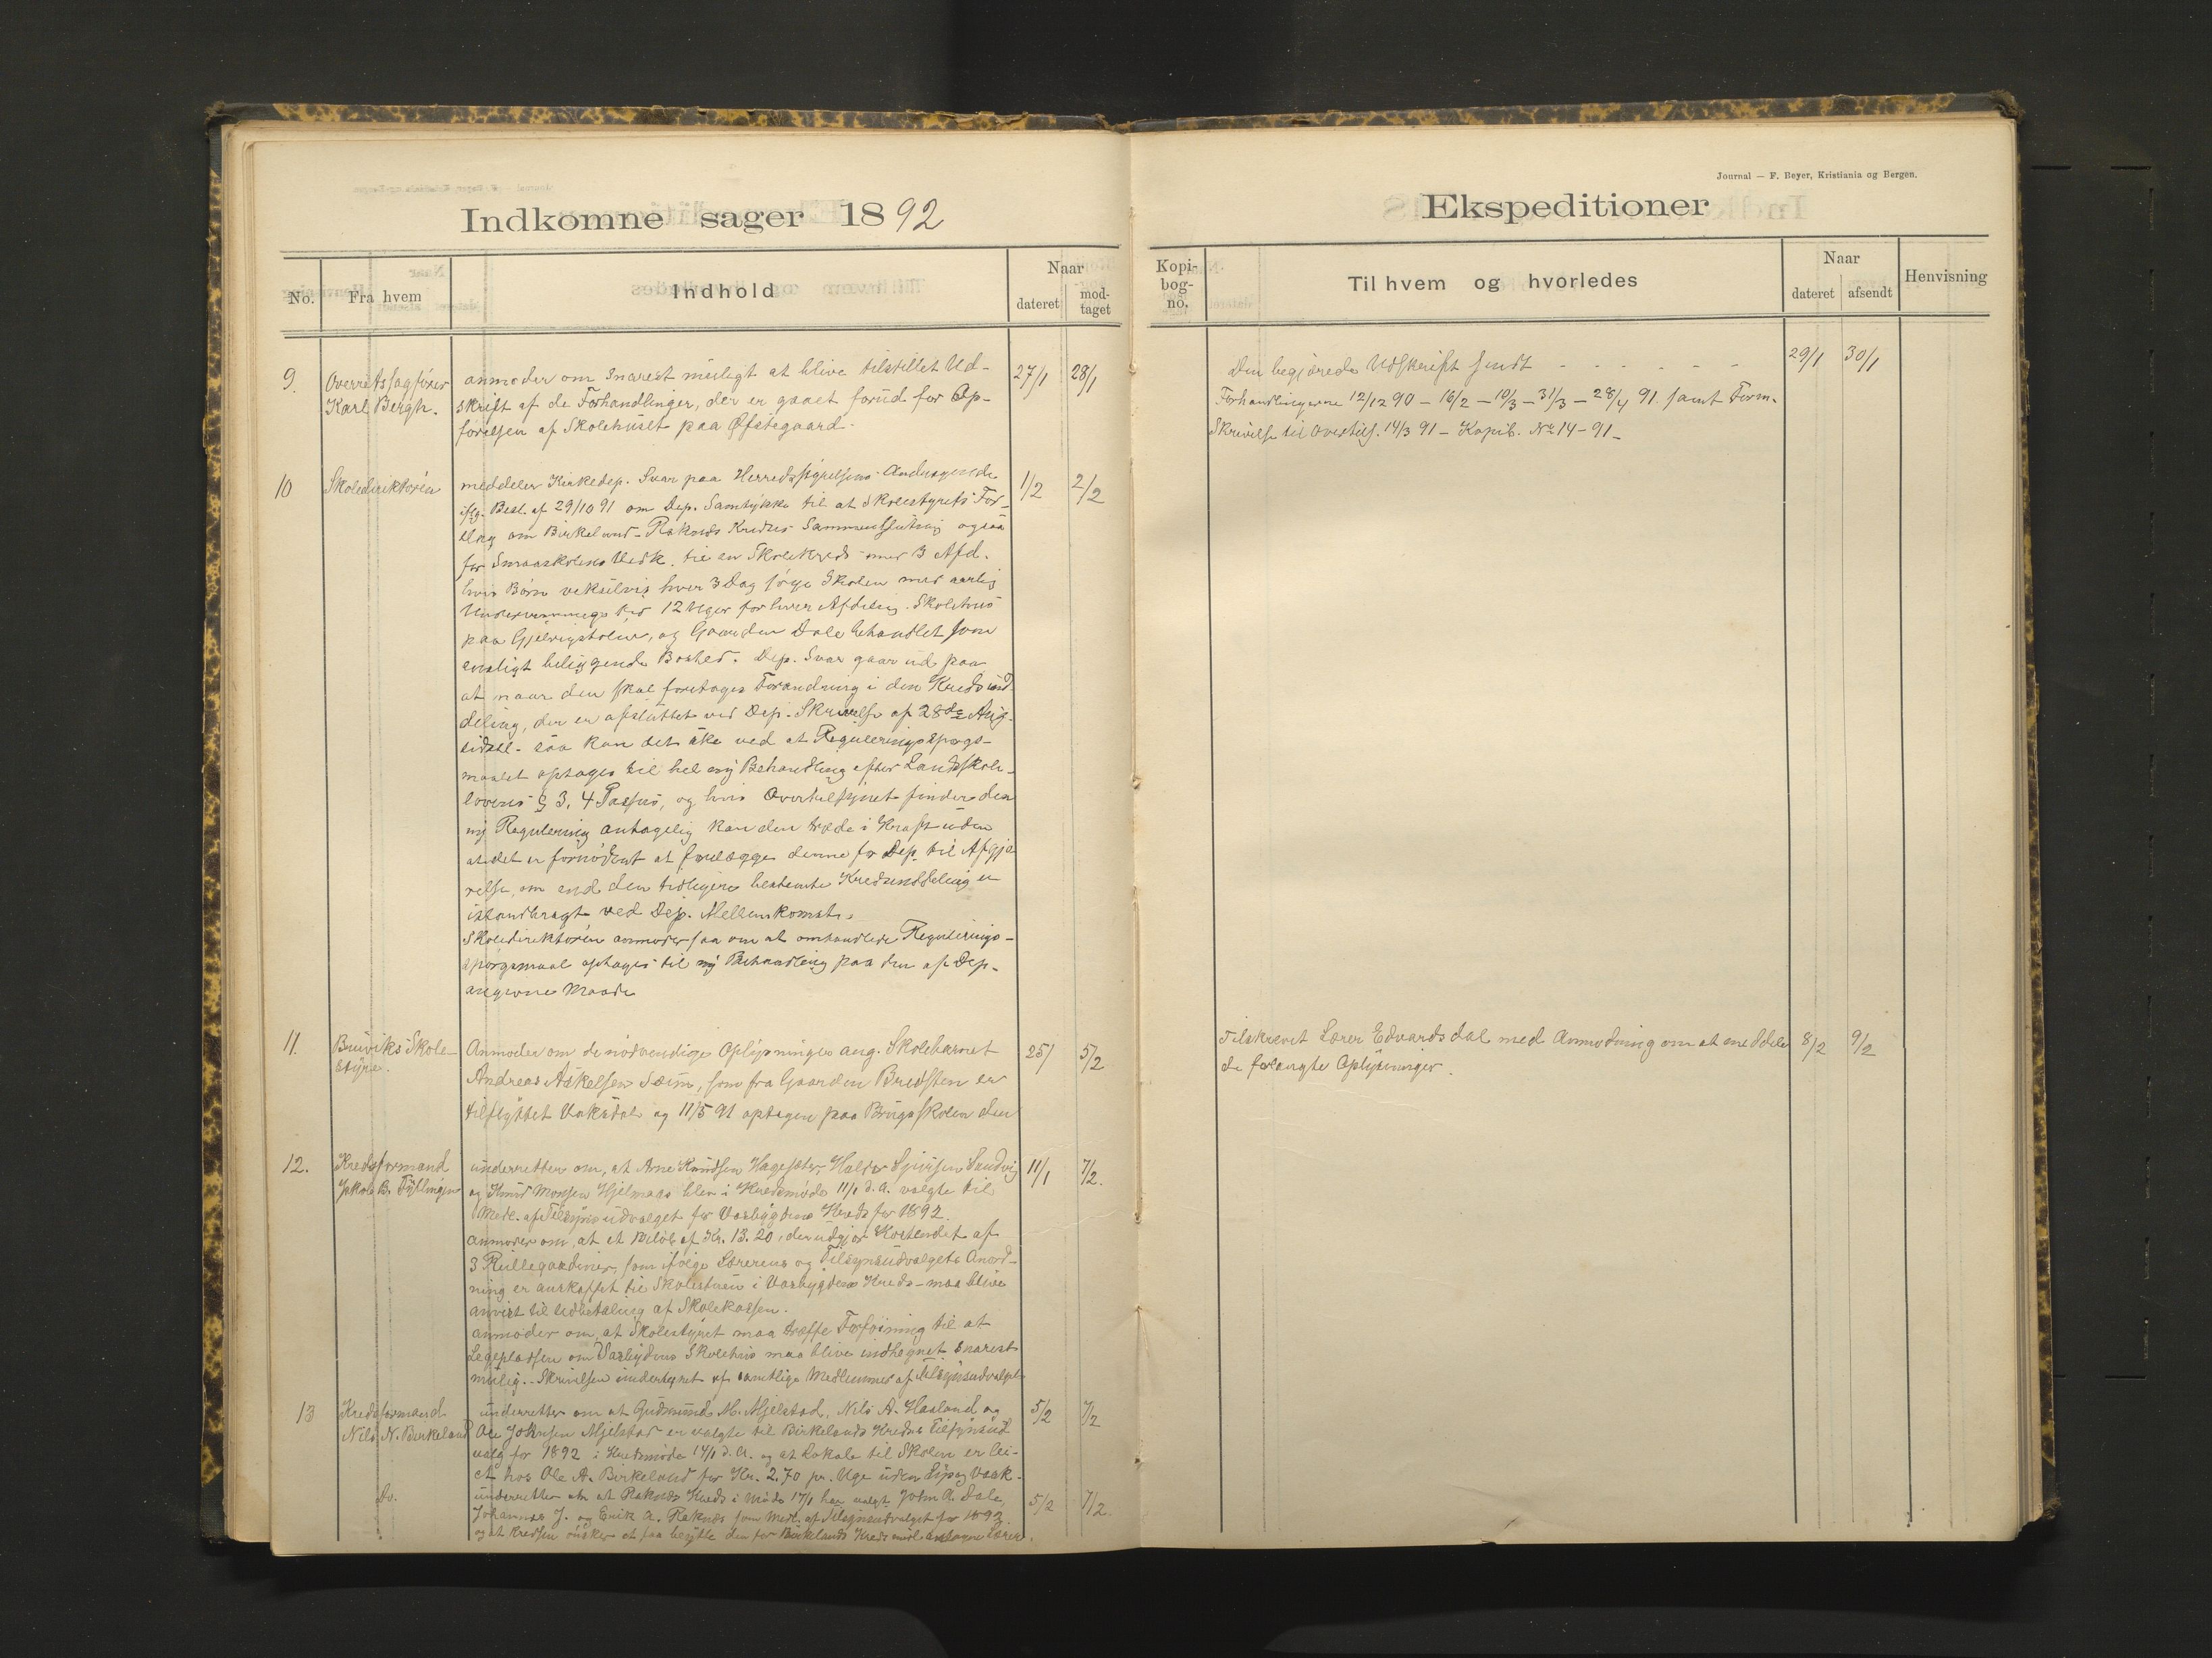 Indkomne sager 1892
No.
Fra hvem
Indhold
Naar
dateret
mod-
taget
9.
Overretssagfører
Karl Bergh.
anmoder om snarest muligt at blive tilstillet Ud-
skrift af de Forhandlinger, der er gaaet forud for Op-
førelsen af Skolehuset paa Øfstegaard.
27/1
28/1
10
Skoledirektøren
meddeler Kirkedep. Svar paa Herredsstyrelsens Andragende
iflg. Besl. af 29/10 91 om Dep. Samtykke til at Skolestyrets For-
slag om Birkeland-Raknæs Kredses Sammenslutning ogsaa
for Smaaskolens Vedk. til en Skolekreds med 3 Afd.
hvis Børn vekselvis hver 3 Dag søge Skolen med aarlig
Undervisnings tid 12 Uger for hver Afdeling. Skolehus
paa Gjervigstølen, og Gaarden Dale behandlet som
ensligt beliggende Bosted. Dep. Svar gaar ud paa
at naar der skal foretages Forandring i den Kredsind-
deling, der er afsluttet ved Dep. Skrivelse af 28de Aug.
sidstl. saa kan det ske ved at Reguleringsspørgs-
maalet optages til hel ny Behandling efter Landsskole-
lovens § 3, 4 Passus, og hvis Overtilsynet finder den
ny Regulering antagelig kan den træde i Kraft uden
at det er fornødent at forelægge denne for Dep. til Afgjø-
relse, om end den tidligere bestemte Kredsinddeling er
istandbragt ved Dep. Mellemkomst.
Skoledirektøren anmoder saa om at omhandlede Regulerings-
spørgsmaal optages til ny Behandling paa den af Dep.
angivne Maade
1/2
2/2
11.
Bruviks Skole-
styre.
Anmoder om de nødvendige Oplysninger ang. Skolebarnet
Andreas Askelsen Sæim, som fra Gaarden Bredsten er
tilflyttet Vaksdal og 11/5 91 optagen paa Brugsskolen der
25/
5/2
12.
Kredsformand
Jakob B. Fyllingen
underretter om, at Arne Knudsen Hagesæter, Haldor Sjursen Sandvig
og Knud Monsen Hjelmaas blev i Kredsmøde 11/1 d.A. valgte til
Medl. af Tilsynsudvalget for Vasbygdens Kreds for 1892.
anmoder om, at et Beløb af Kr. 13.20, der udgjør Kostendet af
3 Rullegardiner, som ifølge Lærerens og Tilsynsudvalgets Anord-
ning er anskaffet til Skolestuen i Vasbygdens Kreds - maa blive
anvist til Udbetaling af Skolekassen.
anmoder om, at Skolestyret maa træffe Forføining til at
Legepladsen om Vasbygdens Skolehus maa blive indhegnet snarest
mulig. - Skrivelsen undertegnet af samtlige Medlemmer af Tilsynsudvalget
11/1
7/2.
13
Kredsformand
Nils N. Birkeland
underretter om at Gudmund M. Mjelstad, Nils A. Hasland og
Ole Johnsen Mjelstad er valgte til Birkelands Kredses Tilsynsud-
valg for 1892 i Kredsmøde 14/1 d.A. og at Lokale til Skolen er lei-
et hos Ole A. Birkeland for Kr. 2.70 pr. Uge uden Lys og Vask.
5/2
7/2
Do.
underretter om at Raknæs Kreds i Møde 17/1 har valgt John A. Dale,
Johannes J. og Erik A. Raknæs som Medl. af Tilsynsudvalget for 1892.
og at Kredsen ønsker at faa benytte den for Birkelands Kreds antagne Lærer.
5/2
7/2.
Journal — F. Beyer, Kristiania og Bergen.
Ekspeditioner
Kopi-
bog-
no.
Til hvem og hvorledes
Naar
dateret
afsendt
Henvisning
Den begjærede Udskrift sendt - - - - - -
29/1
30/1
Forhandlingerne 12/12 90 - 16/2 - 10/3 - 31/3 - 28/4 91. samt Form.
Skrivelse til Overtils. 14/3 91 - Kopib. No 14-91-
Tilskrevet Lærer Edvardsdal med Anmodning om at meddele
de forlangte Oplysninger.
8/2
9/2